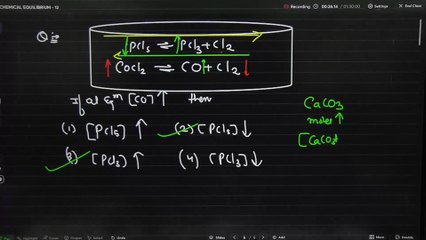 CHEMICAL EQUILIBRIUM - 12
Recording 00:26:14 / 01:30:00 End Class
Q :-
PCl5 ⇌ PCl3 + Cl2
COCl2 ⇌ CO + Cl2
If at eqm [CO] ↑ then
(1) [PCl5] ↑ (2) [PCl5] ↓
(3) [PCl3] ↑ (4) [PCl3] ↓
CaCO3
moles ↑
[CaCO3]
Undo